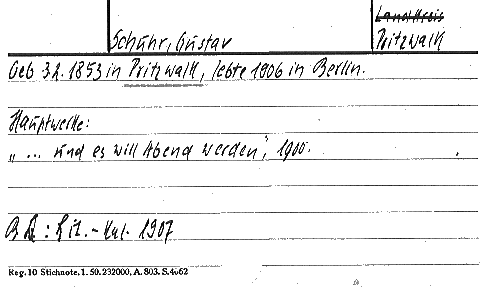 Landkreis
Schuhr, Gustav
Pritzwalk
Geb 3.2. 1853 in Pritzwalk, lebte 1906 in Berlin.
Hauptwerke:
„ ... und es will Abend werden", 1900.
BQ: Lit.-Kal. 1907
Reg. 10 Stichnote. 1. 50. 232000, A. 803. S. 4062